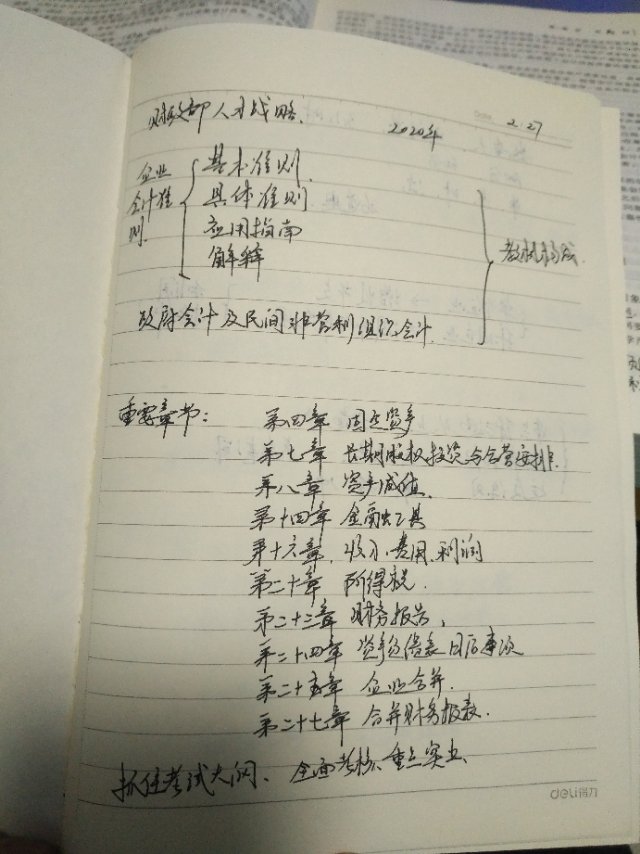 财政部人才战略. 2020年 2.27
企业会计准则 { 基本准则.
具体准则
应用指南
解释
} 教材构成
政府会计及民间非营利组织会计
重要章节: 第四章 固定资产
第七章 长期股权投资与合营安排.
第八章 资产减值.
第十四章 金融工具
第十六章. 收入、费用、利润
第二十章 所得税.
第二十三章 财务报告.
第二十四章 资产负债表日后事项
第二十五章 企业合并.
第二十七章 合并财务报表.
抓住考试大纲、全面考核、重点突出
deli得力